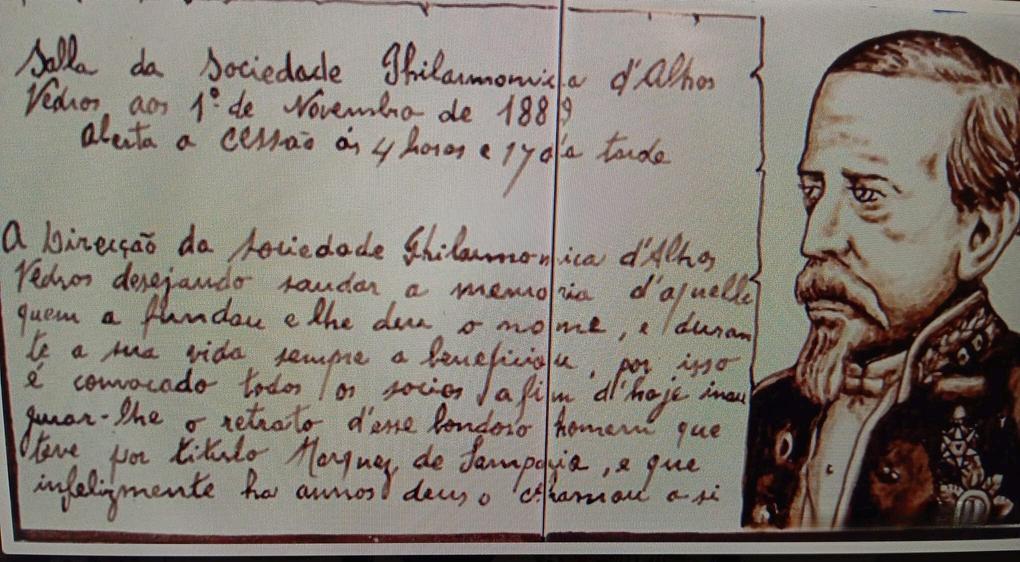 Salla da Sociedade Philarmonica d'Alhos
Vedros aos 1º de Novembro de 1889
Aberta a cessão ás 4 horas e da tarde
A Direcção da Sociedade Philarmonica d'Alhos
Vedros desejando saudar a memoria d'aquelle
quem a fundou e lhe deu o nome, e duran
te a sua vida sempre a beneficiou, por isso
é convocado todos os socios afim d'hoje inau
gurar-lhe o retrato d'esse bondoso homem que
teve por titulo Marquez de Sampayo, e que
infelizmente ha annos deus o chamou a si